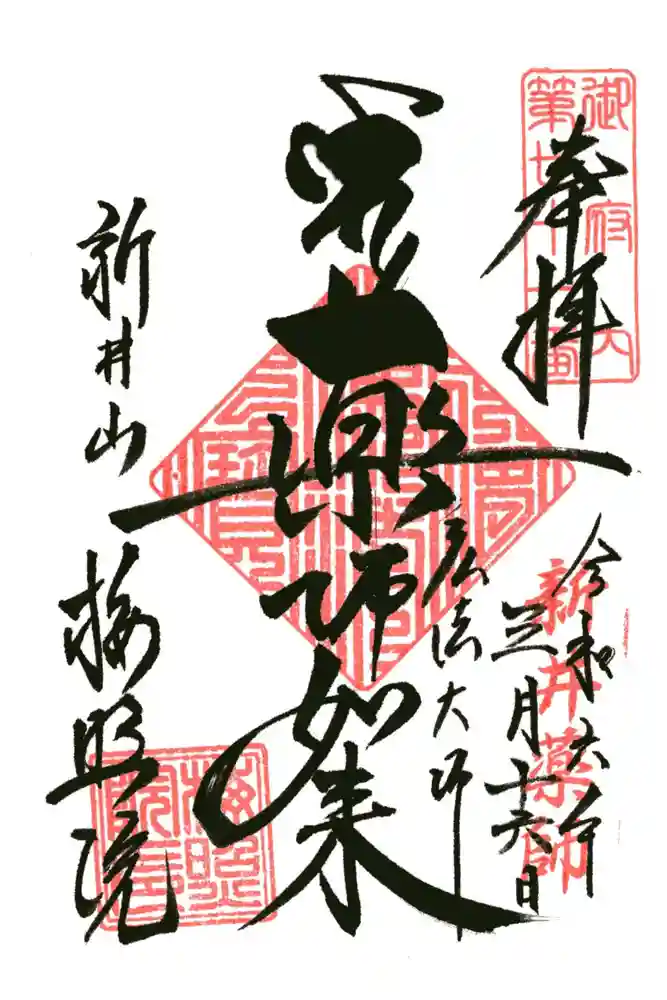 御府内
第七十一番
奉拝
令和六年
三月十六日
新井薬師
薬師如来
弘法大師
新井山
梅照院